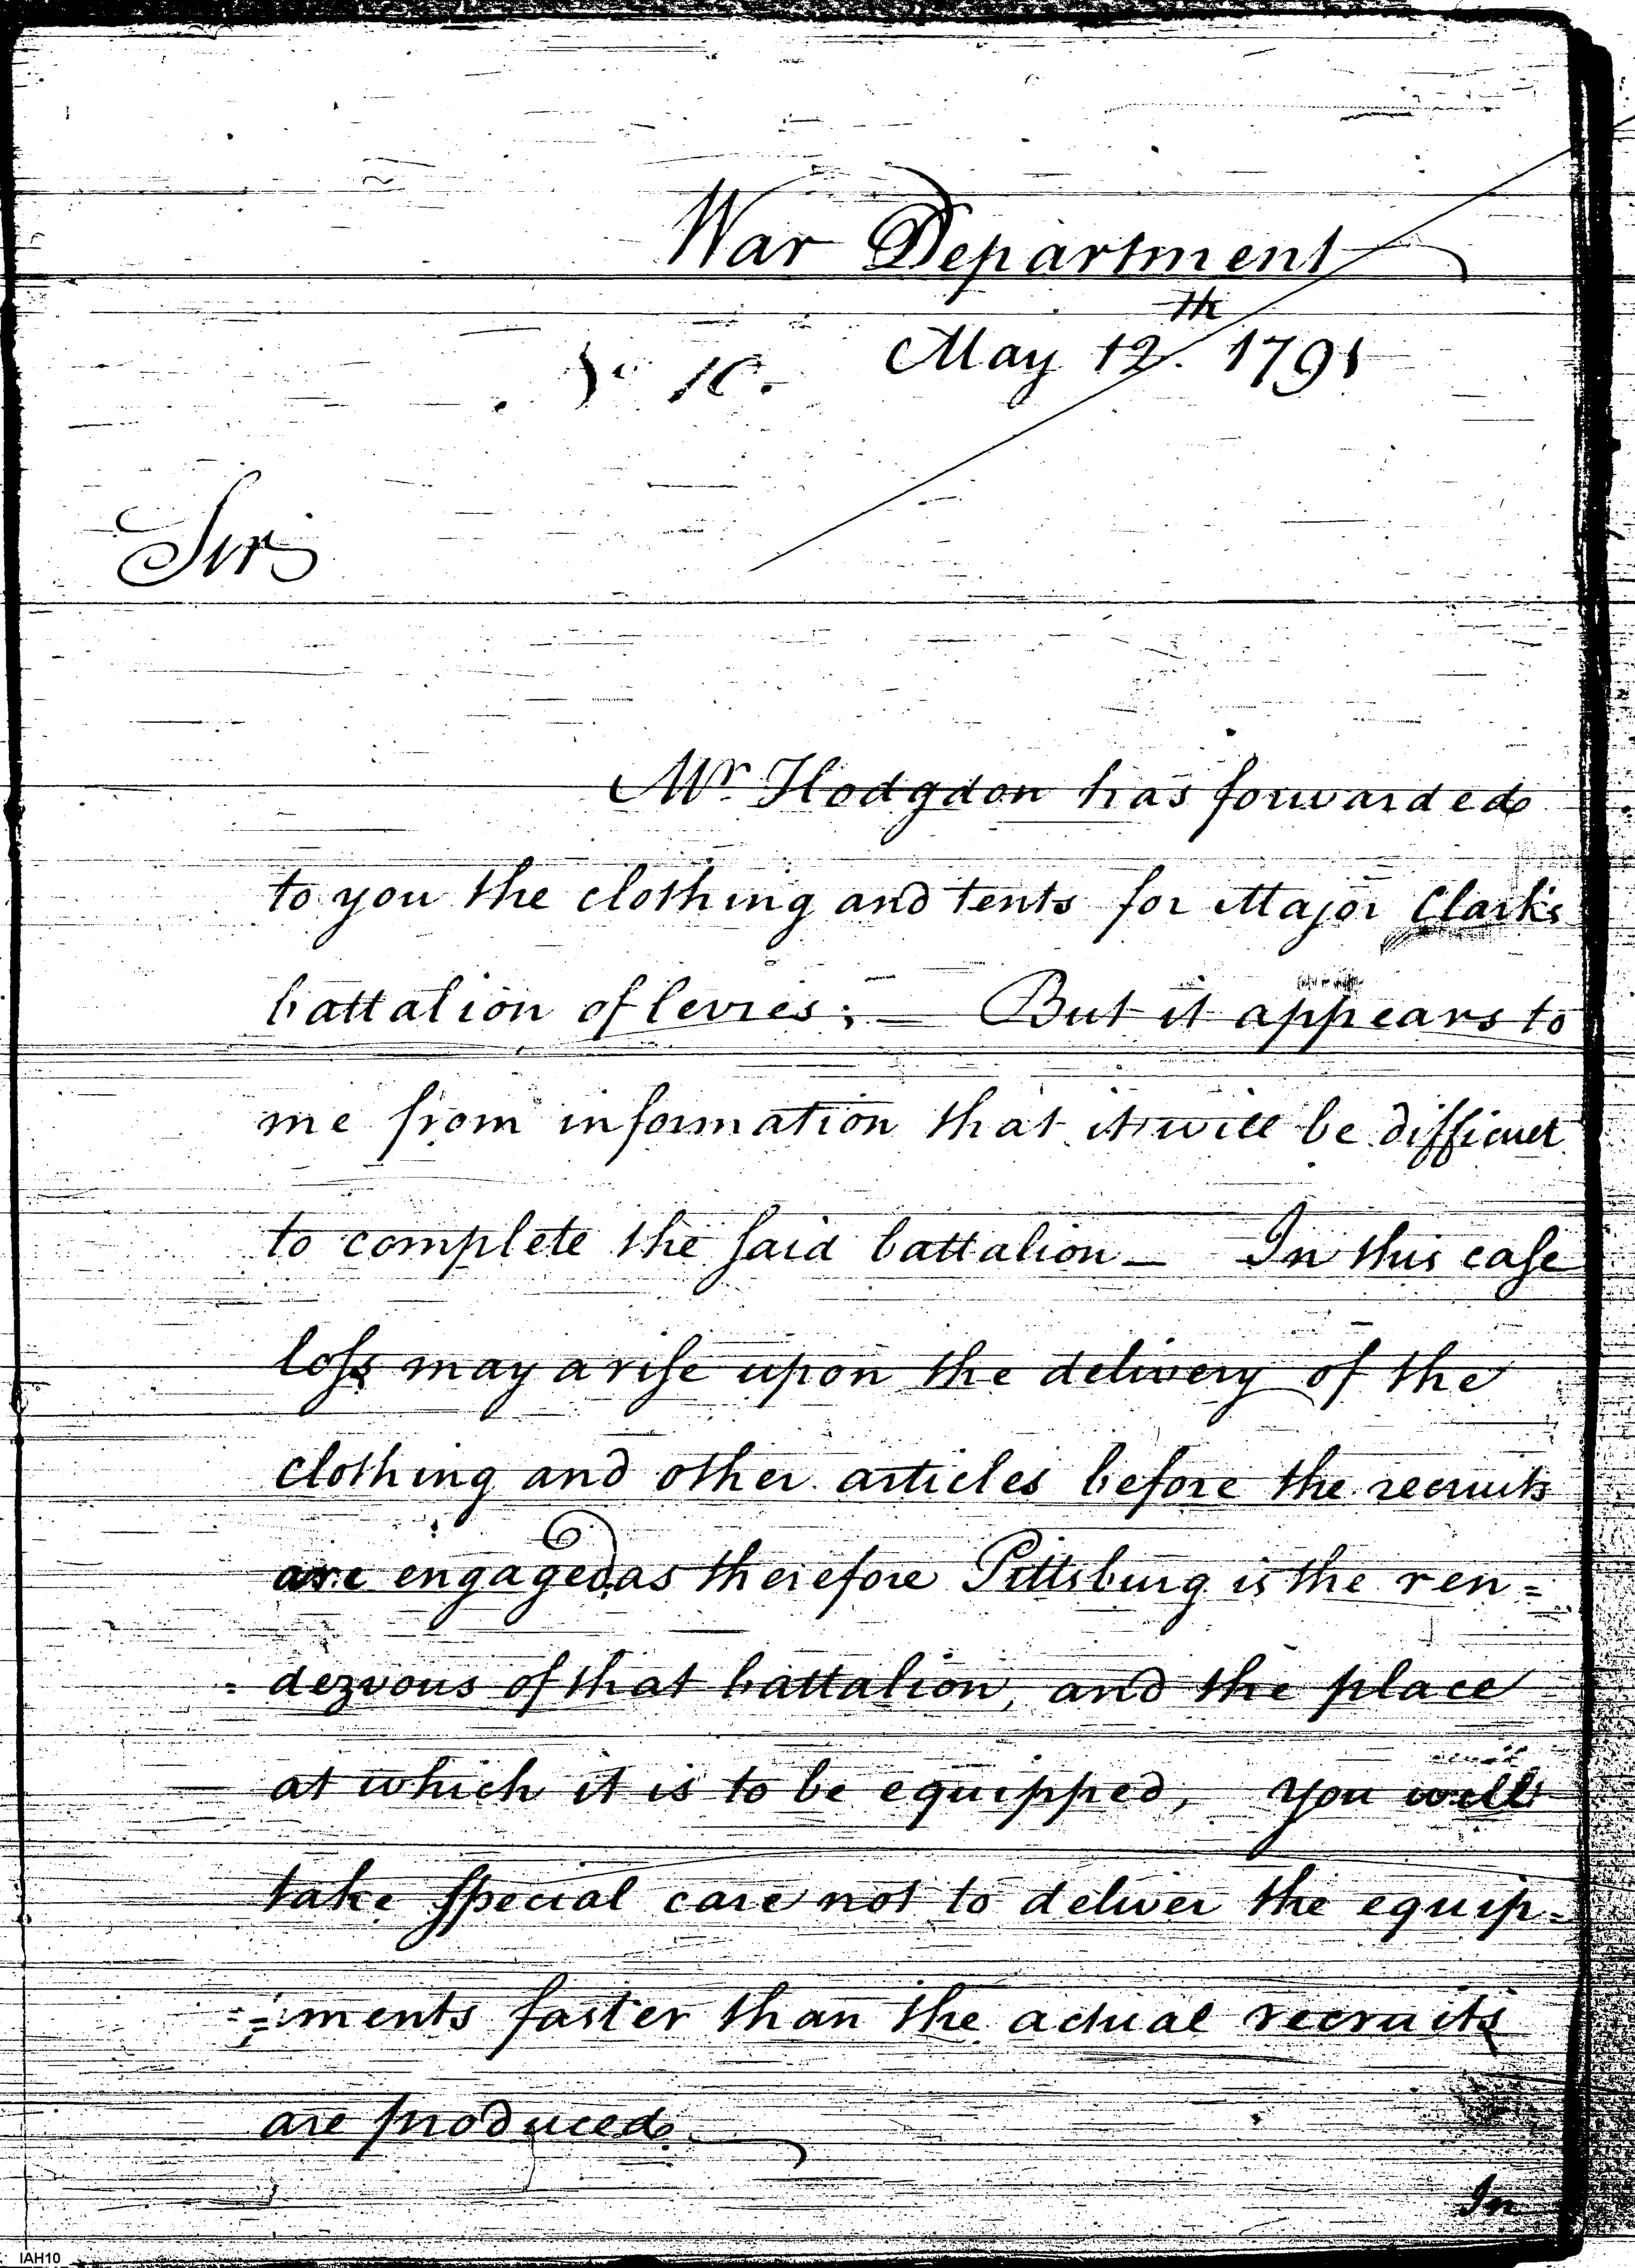 War Department
May 12th. 1791
Sir
Mr. Hodgdon has forwarded
to you the clothing and tents for Major Clark's
battalion of levies; — But it appears to
me from information that it will be difficult
to complete the said battalion — In this case
loss may arise upon the delivery of the
clothing and other articles before the recruits
are engaged as therefore Pittsburg is the ren=
=dezvous of that battalion, and the place
at which it is to be equipped, you will
take special care not to deliver the equip=
=ments faster than the actual recruits
are produced
In
IAH10